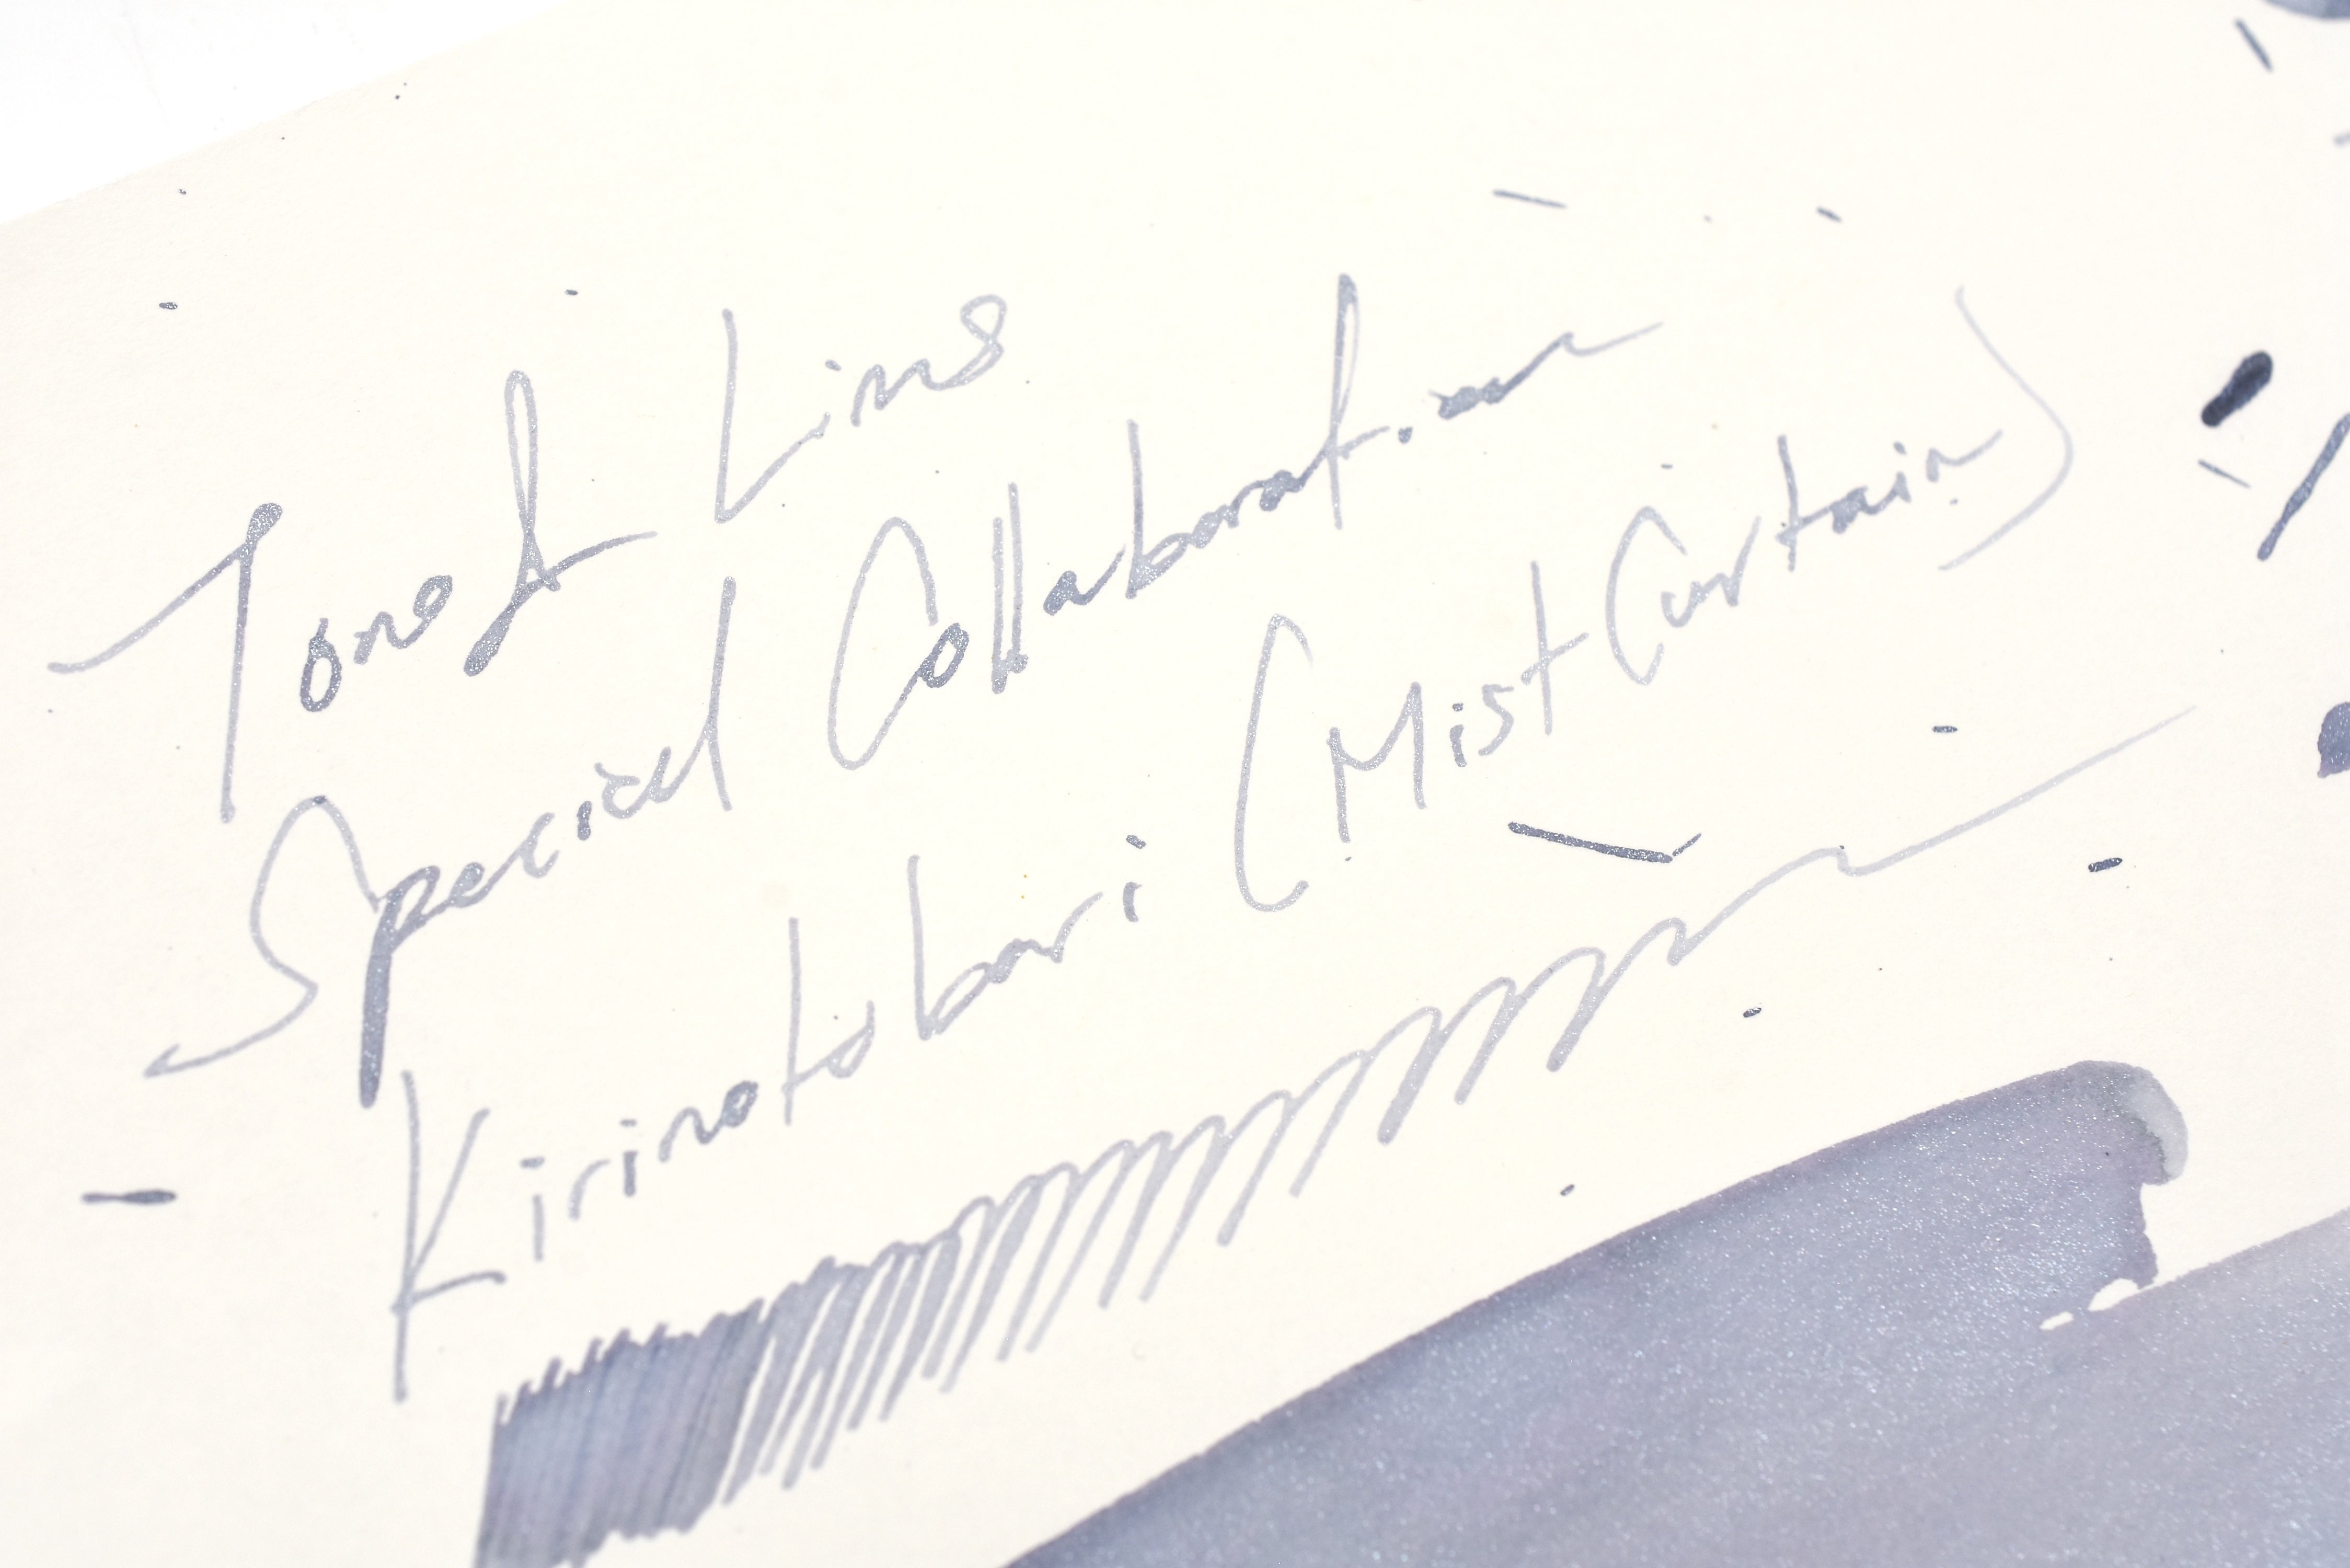 Tono & Lims
Special Collaboration
Kirinotobari (Mist Curtain)